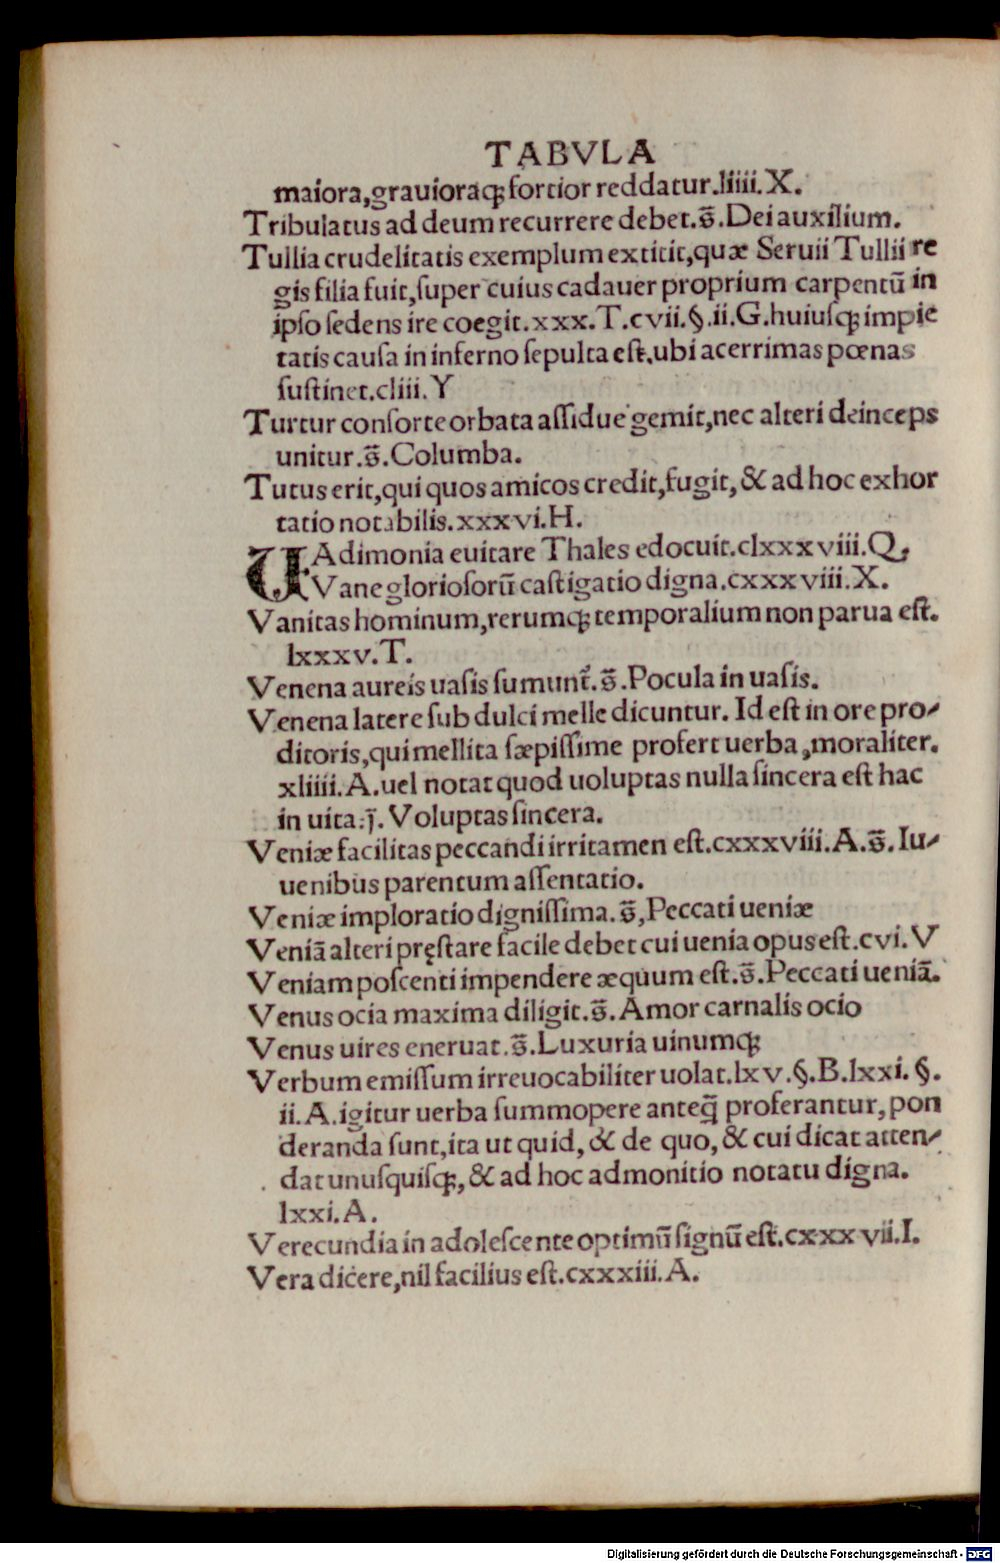 TABVLA
maiora,grauioraq; fortior reddatur.liiii.X.
Tribulatus ad deum recurrere debet.s̄.Dei auxilium.
Tullia crudelitatis exemplum extitit,quæ Seruii Tullii re
gis filia fuit,super cuius cadauer proprium carpentū in
ipso sedens ire coegit.xxx.T.cvii.§.ii.G.huiusq; impie
tatis causa in inferno sepulta est.ubi acerrimas pœnas
sustinet.cliii.Y
Turtur consorte orbata assidue gemit,nec alteri deinceps
unitur.s̄.Columba.
Tutus erit,qui quos amicos credit,fugit,& ad hoc exhor
tatio notabilis.xxxvi.H.
VAdimonia euitare Thales edocuit.clxxxviii.Q,
Vane gloriosorū castigatio digna.cxxxviii.X.
Vanitas hominum,rerumq; temporalium non parua est.
lxxxv.T.
Venena aureis uasis sumunt᷑.s̄.Pocula in uasis.
Venena latere sub dulci melle dicuntur. Id est in ore pro-
ditoris,qui mellita sæpissime profert uerba,moraliter.
xliiii.A.uel notat quod uoluptas nulla sincera est hac
in uita:j̄.Voluptas sincera.
Veniæ facilitas peccandi irritamen est.cxxxviii.A.s̄.Iu-
uenibus parentum assentatio.
Veniæ imploratio dignissima.s̄,Peccati ueniæ
Veniā alteri pręstare facile debet cui uenia opus est.cvi.V
Veniam poscenti impendere æquum est.s̄.Peccati ueniā.
Venus ocia maxima diligit.s̄.Amor carnalis ocio
Venus uires eneruat.s̄.Luxuria uinumq;
Verbum emissum irreuocabiliter uolat.lxv.§.B.lxxi.§.
ii.A.igitur uerba summopere anteq̄ proferantur,pon
deranda sunt,ita ut quid,& de quo,& cui dicat atten-
dat unusquisq;,& ad hoc admonitio notatu digna.
lxxi.A.
Verecundia in adolescente optimū signū est.cxxxvii.I.
Vera dicere,nil facilius est.cxxxiii.A.
Digitalisierung gefördert durch die Deutsche Forschungsgemeinschaft - DFG